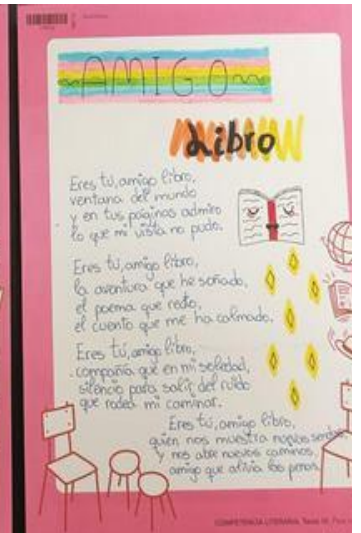 AMIGO
Libro
Eres tú, amigo libro,
ventana del mundo
y en tus páginas admiro
lo que mi vista no pudo.
Eres tú, amigo libro,
la aventura que he soñado,
el poema que recito,
el cuento que me ha calmado.
Eres tú, amigo libro,
compañía que en mi soledad,
silencio para salir del ruido
que rodea mi caminar.
Eres tú, amigo libro,
quien nos muestra nuevos
y nos abre nuevos caminos,
amigo que alivia las penas.
COMPETENCIA LITERARIA.